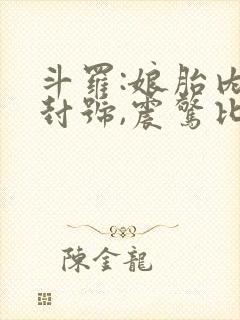 斗羅:娘胎内
封號,震驚比
陳金龍